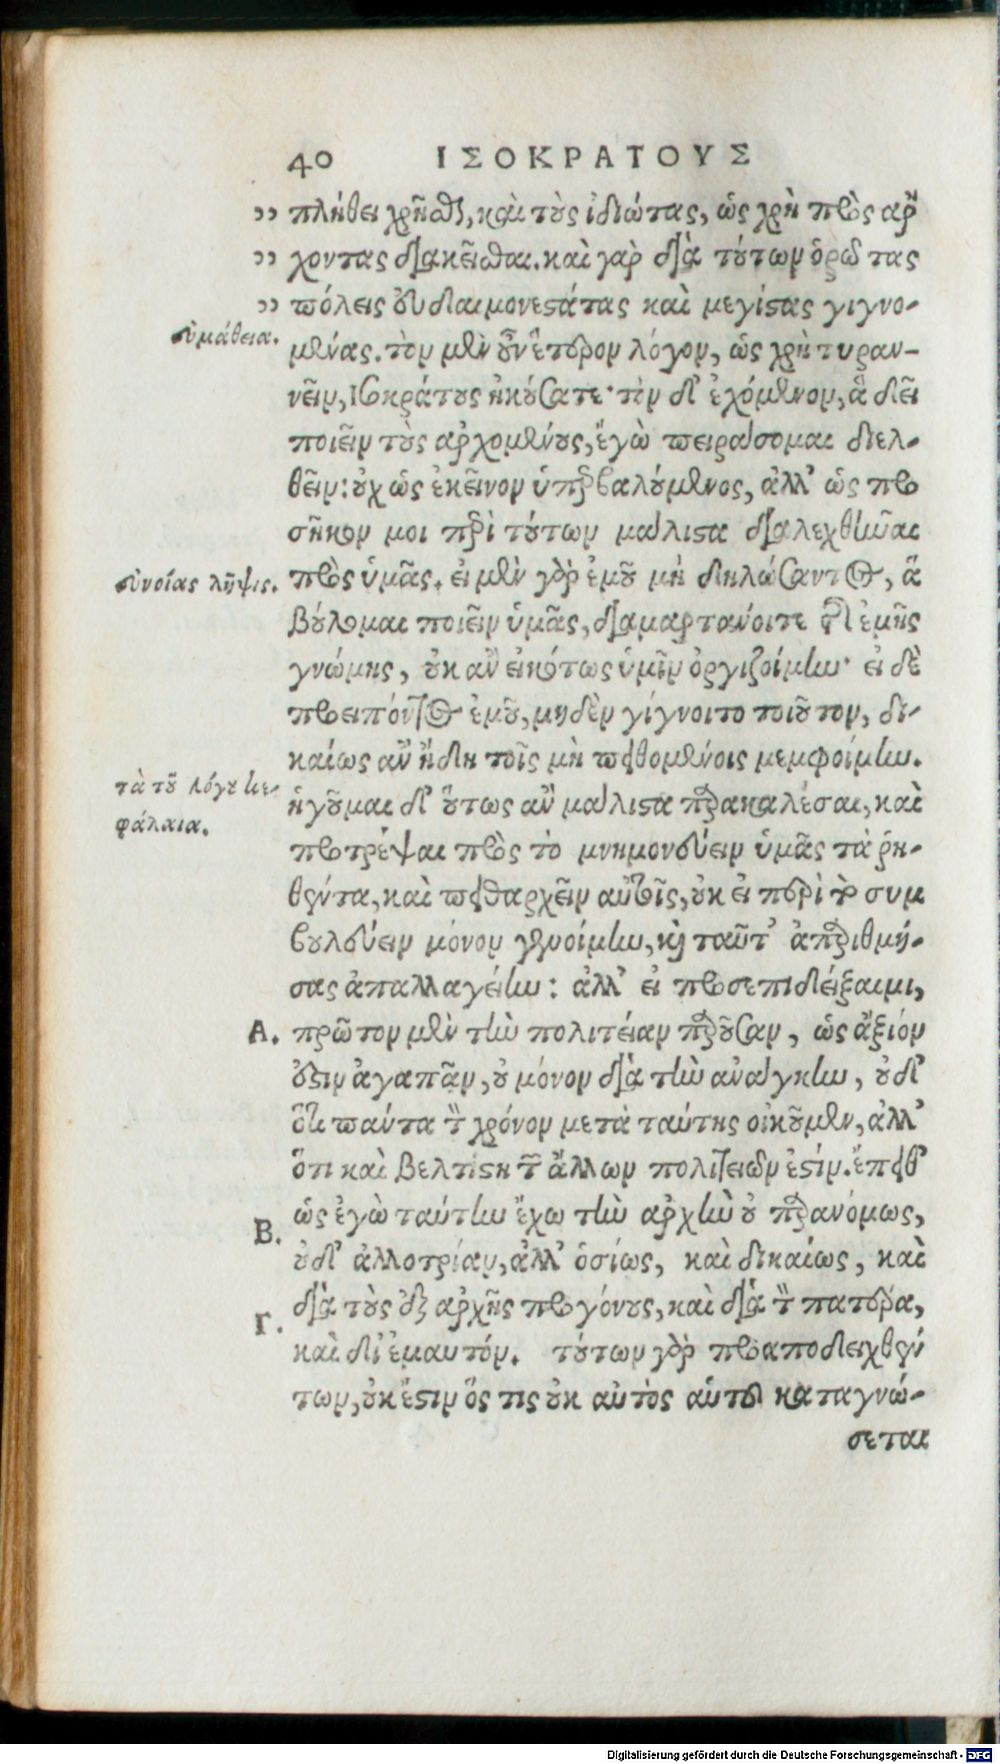 40 ΙΣΟΚΡΑΤΟΥΣ
,, πλήθει χρῆσθαι, καὶ τοὺς ἰδιώτας, ὡς χρὴ πρὸς ἄρ
,, χοντας διακεῖσθαι. καὶ γὰρ διὰ τούτων ὁρῶ τας
,, πόλεις εὐδαιμονεστάτας καὶ μεγίστας γιγνο-
εὐμάθεια.
μένας. τὸν μὲν οὖν ἕτερον λόγον, ὡς χρὴ τυραν-
νεῖν, Ισοκράτους ἠκούσατε· τὸν δ' ἐχόμενον, ἃ δεῖ
ποιεῖν τοὺς ἀρχομένους, ἐγὼ πειράσομαι διελ-
θεῖν: οὐχ ὡς ἐκεῖνον ὑπερβαλούμενος, ἀλλ' ὡς προ
σῆκον μοι περὶ τούτων μάλιστα διαλεχθῆναι
εὐνοίας λῆψις.
πρὸς ὑμᾶς. εἰ μὲν γὰρ ἐμοῦ μὴ δηλώσαντος, ἃ
βούλομαι ποιεῖν ὑμᾶς, διαμαρτάνοιτε τῆς ἐμῆς
γνώμης, οὐκ ἂν εἰκότως ὑμῖν ὀργιζοίμην· εἰ δὲ
προειπόντος ἐμοῦ, μηδὲν γίγνοιτο τοιοῦτον, δι-
καίως ἂν ἤδη τοῖς μὴ πειθομένοις μεμφοίμην.
τὰ τοῦ λόγου κε-
φάλαια.
ἡγοῦμαι δ' οὕτως ἂν μάλιστα παρακαλέσαι, καὶ
προτρέψαι πρὸς τὸ μνημονεύειν ὑμᾶς τὰ ῥη-
θέντα, καὶ πειθαρχεῖν αὐτοῖς, οὐκ εἰ περὶ τὸ συμ
βουλεύειν μόνον γενοίμην, καὶ ταῦτ' ἀπαριθμή-
σας ἀπαλλαγείην: ἀλλ' εἰ προσεπιδείξαιμι,
Α. πρῶτον μὲν τὴν πολιτείαν παροῦσαν, ὡς ἄξιόν
ἐστιν ἀγαπᾶν, οὐ μόνον διὰ τὴν ἀνάγκην, οὐδ'
ὅτι πάντα τὸν χρόνον μετὰ ταύτης οἰκοῦμεν, ἀλλ'
ὅτι καὶ βελτίστη τῶν ἄλλων πολιτειῶν ἐστίν. ἔπειθ'
Β. ὡς ἐγὼ ταύτην ἔχω τὴν ἀρχὴν οὐ παρανόμως,
οὐδ' ἀλλοτρίαν, ἀλλ' ὁσίως, καὶ δικαίως, καὶ
Γ. διὰ τοὺς ἐξ ἀρχῆς προγόνους, καὶ διὰ τὸν πατέρα,
καὶ δι' ἐμαυτόν. τούτων γὰρ προαποδειχθέν
των, οὐκ ἔστιν ὅς τις οὐκ αὐτὸς αὑτοῦ καταγνώ-
σεται
Digitalisierung gefördert durch die Deutsche Forschungsgemeinschaft - DFG